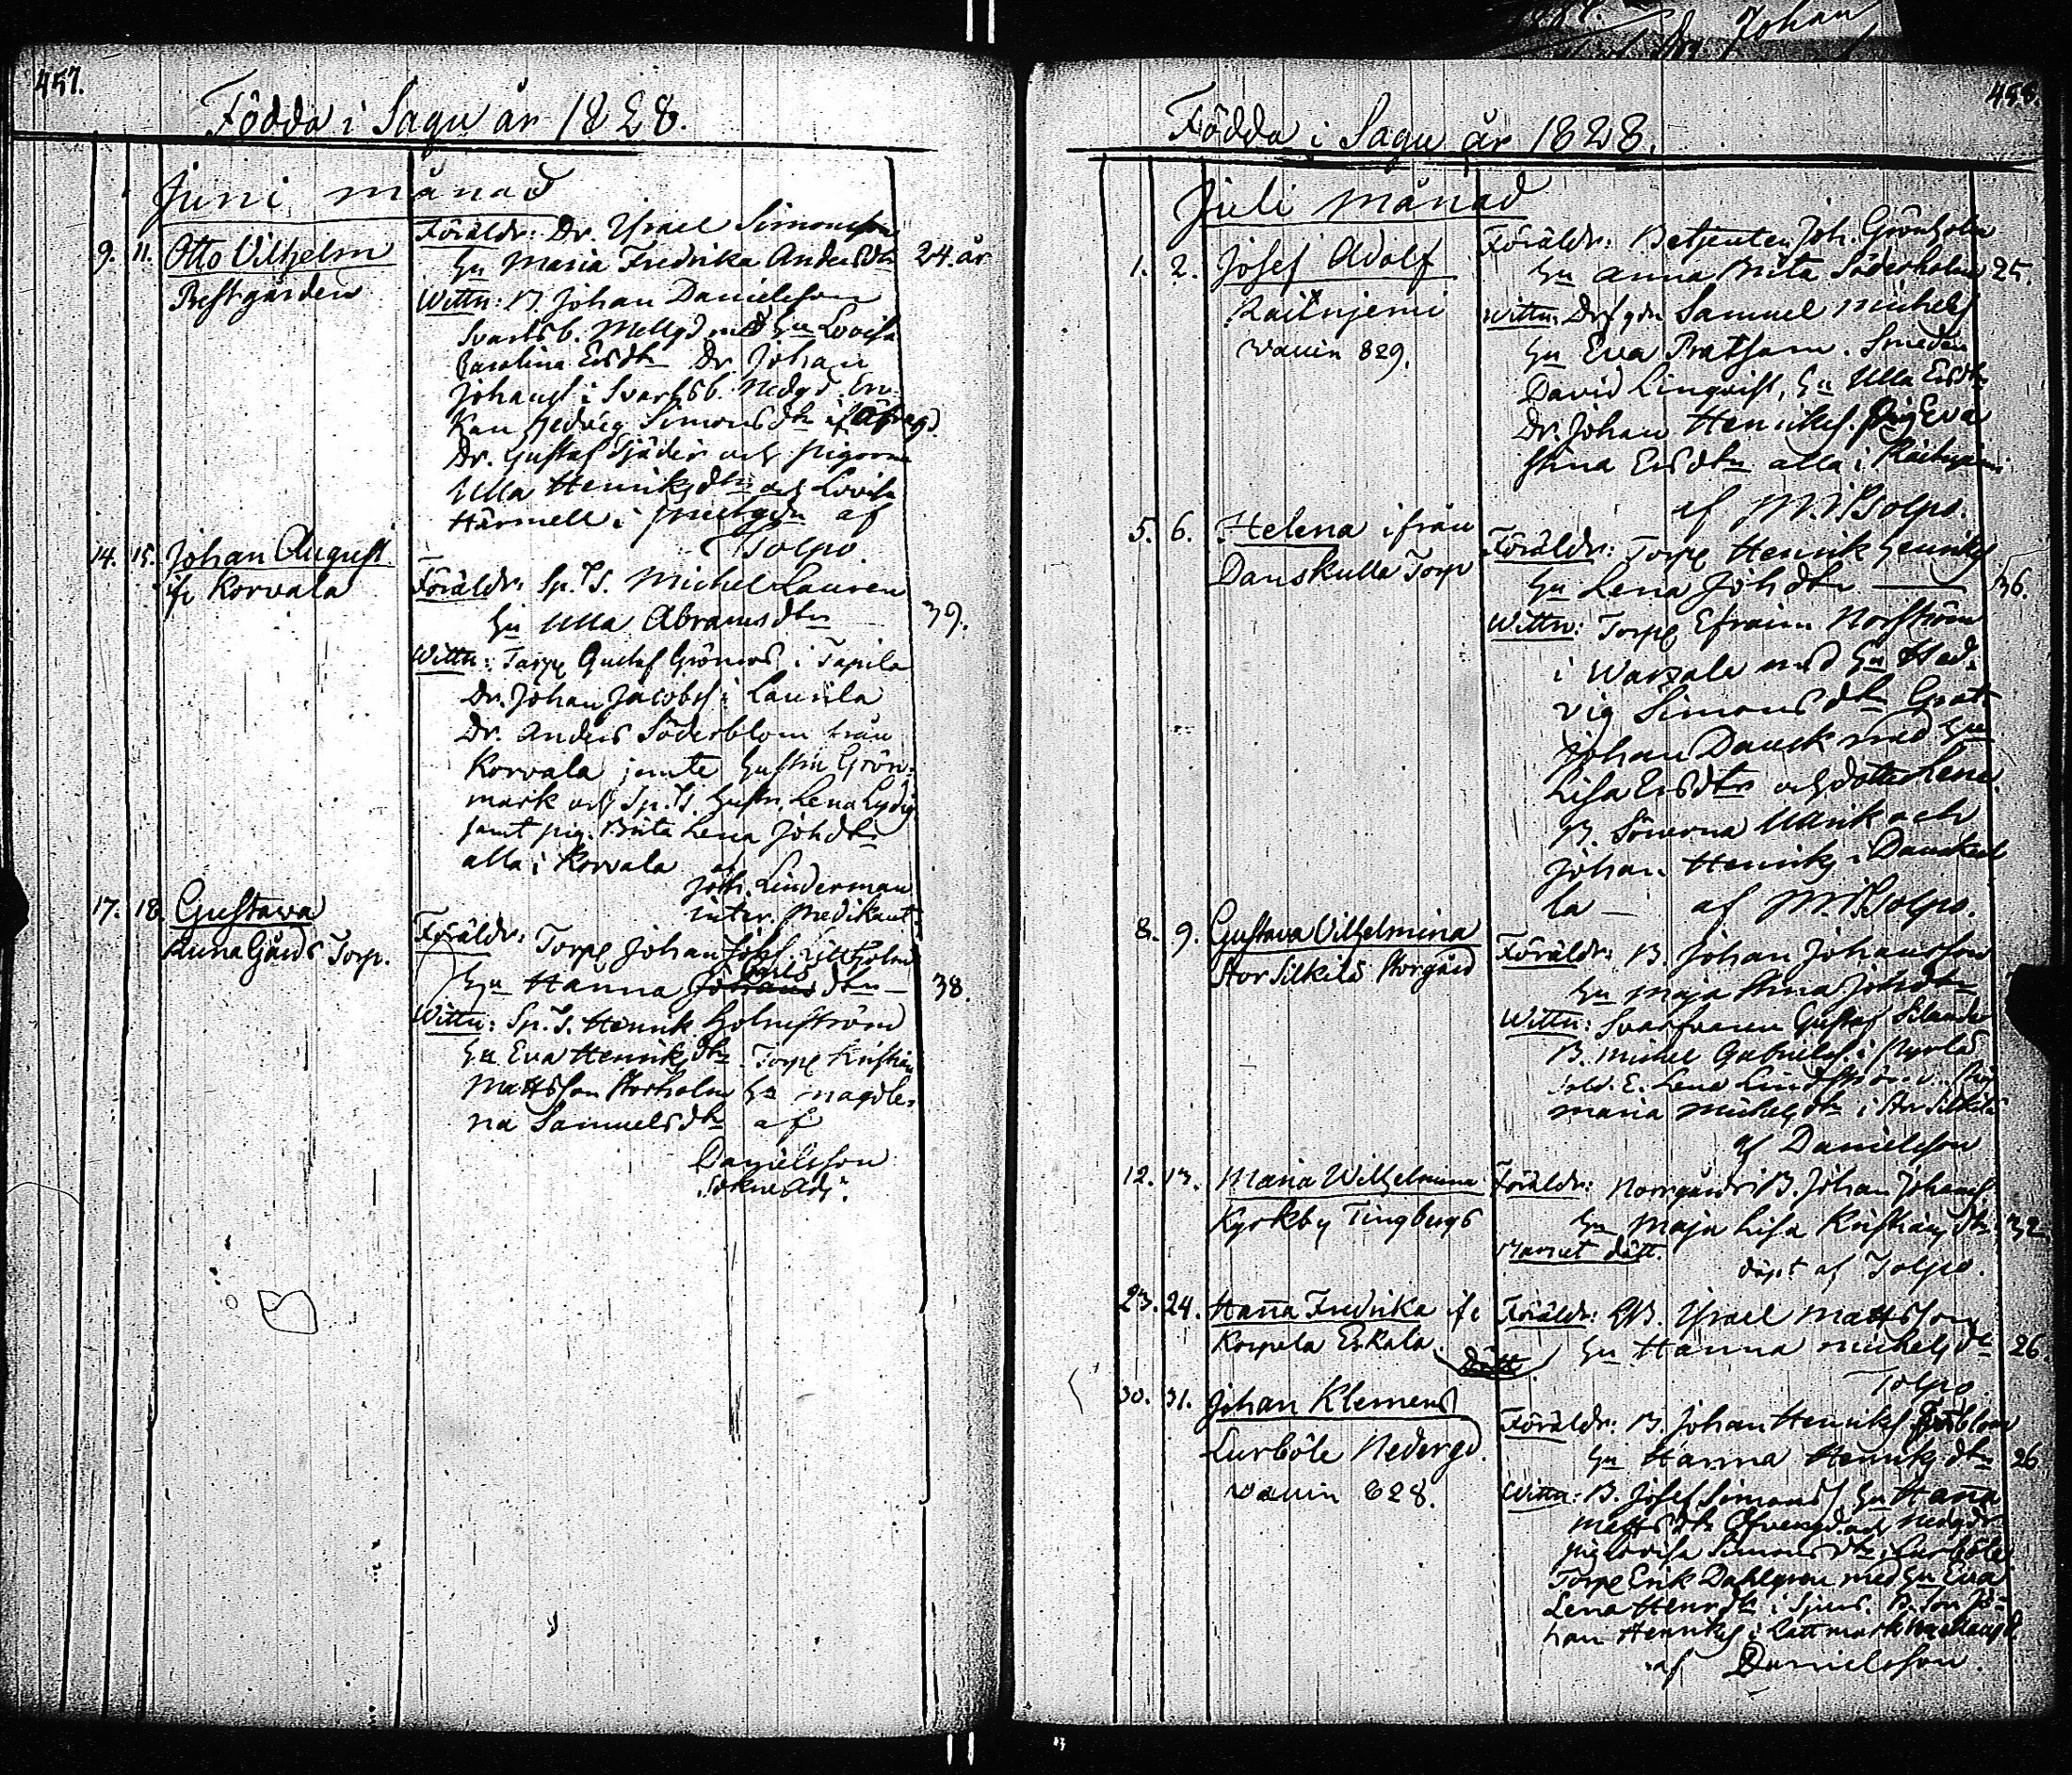 457.
Födda i Sagu år 1828.
Juni månad
9. 11. Otto Vilhelm
Prestgården
Föräldr: Dr. Israel Simonsson
Hu Maria Fredrika Andersdtr 24. år
Wittn: B. Johan Danielsson
Svartsb. Mellgd med Hu Lovisa
Carolina Ersdtr Dr. Johan
Johanss i Svartsb. Nedgd En-
kan Hedvig Simonsdtr if Öfvergd.
Dr. Gustaf Sjäder och pigorna
Ulla Henriksdtr och Lovisa
Härmell i prestgdn af
Tolpo
14. 15. Johan August
ifr Korvala
Föräldr: Sp. Is. Michel Lauren
Hu Ulla Abramsdtr 39.
Wittn: Torpr Gustaf Grönros i Tapila
Dr. Johan Jacobss i Laurila
Dr. Anders Söderblom från
Korvala jemte Hustru Grön-
mark och Sp. Is. Hustr. Lena Lydig
samt pig. Brita Lena Johdtr
alla i Korvala af
Joh. Linderman
inter. Predikant.
17. 18. Gustava
Runa Gårds Torp.
Föräldr: Torpr Johan Josefs. Lillholm
Carls
Hu Hanna Johansdtr 38.
Wittn: Sp. Is. Henrik Holmström
Hu Eva Henriksdtr Torpr Kristian
Mattsson Storholm Hu Magdle-
na Samuelsdtr af
Danielsson
Sokne Adj.
458.
Födda i Sagu år 1828.
Juli månad
1. 2. Josef Adolf
Raitnjemi
Vaccin 829.
Föräldr: Betjenten Joh. Grönholm
Hu Anna Brita Söderholm 25.
Wittn: Samuel Michels
Hu Eva Smeden
David Linqvist, Hu Ulla Ersdtr
Dr. Johan Henrikss. pig Eva
Stina Ersdtr alla i Raitnjemi
af M. Tolpo.
5. 6. Helena ifrån
Danskulla Torp
Föräldr: Torpr Henrik Henrikss
Hu Lena Johdtr 36.
Wittn: Torpr Efraim Norström
i Warsala med Hu Hed-
vig Simonsdtr
Johan Dansk med Hu
Lisa Ersdtr och dotter Lena
B. Sönerna Ulrik och
Johan Henriks i Danskul
la af M. Tolpo.
8. 9. Gustava Vilhelmina
Stor Silkilä Storgård
Föräldr: B. Johan Johansson
Hu Maja Stina Johdtr
Wittn: Svarfvaren Gustaf Silander
B. Michel Gabrielss. i
Sold. E. Lena Lindström
Maria Michelsdtr i Stor Silkilä
af Danielsson
12. 13. Maria Wilhelmina
Kyrkby Tingbergs
Föräldr: Norrgårds B. Johan Johanss
Hu Maja Lisa Kristiansdtr 32
Barnet dött.
döpt af Tolpo.
23. 24. Hanna Fredrika ifr
Korpela Eskala.
Dött.
Föräldr: B. Israel Mattsson
Hu Hanna Michelsdtr 26.
Tolpo.
30. 31. Johan Klemens
Lurböle Nedergd.
Vaccin 828.
Föräldr: B. Johan Henriks
Hu Hanna Henriksdtr 26
Wittn: B. Josef Simons Hu Hanna
Mattsdtr Öfvergd och Nedgdn
pig Lovisa Simonsdtr i Lurböle
Torpr Erik Dahlgren med Hu Eva
Lena Henrdtr i B. Son Jo-
han Henriks i
af Danielsson.
Johan